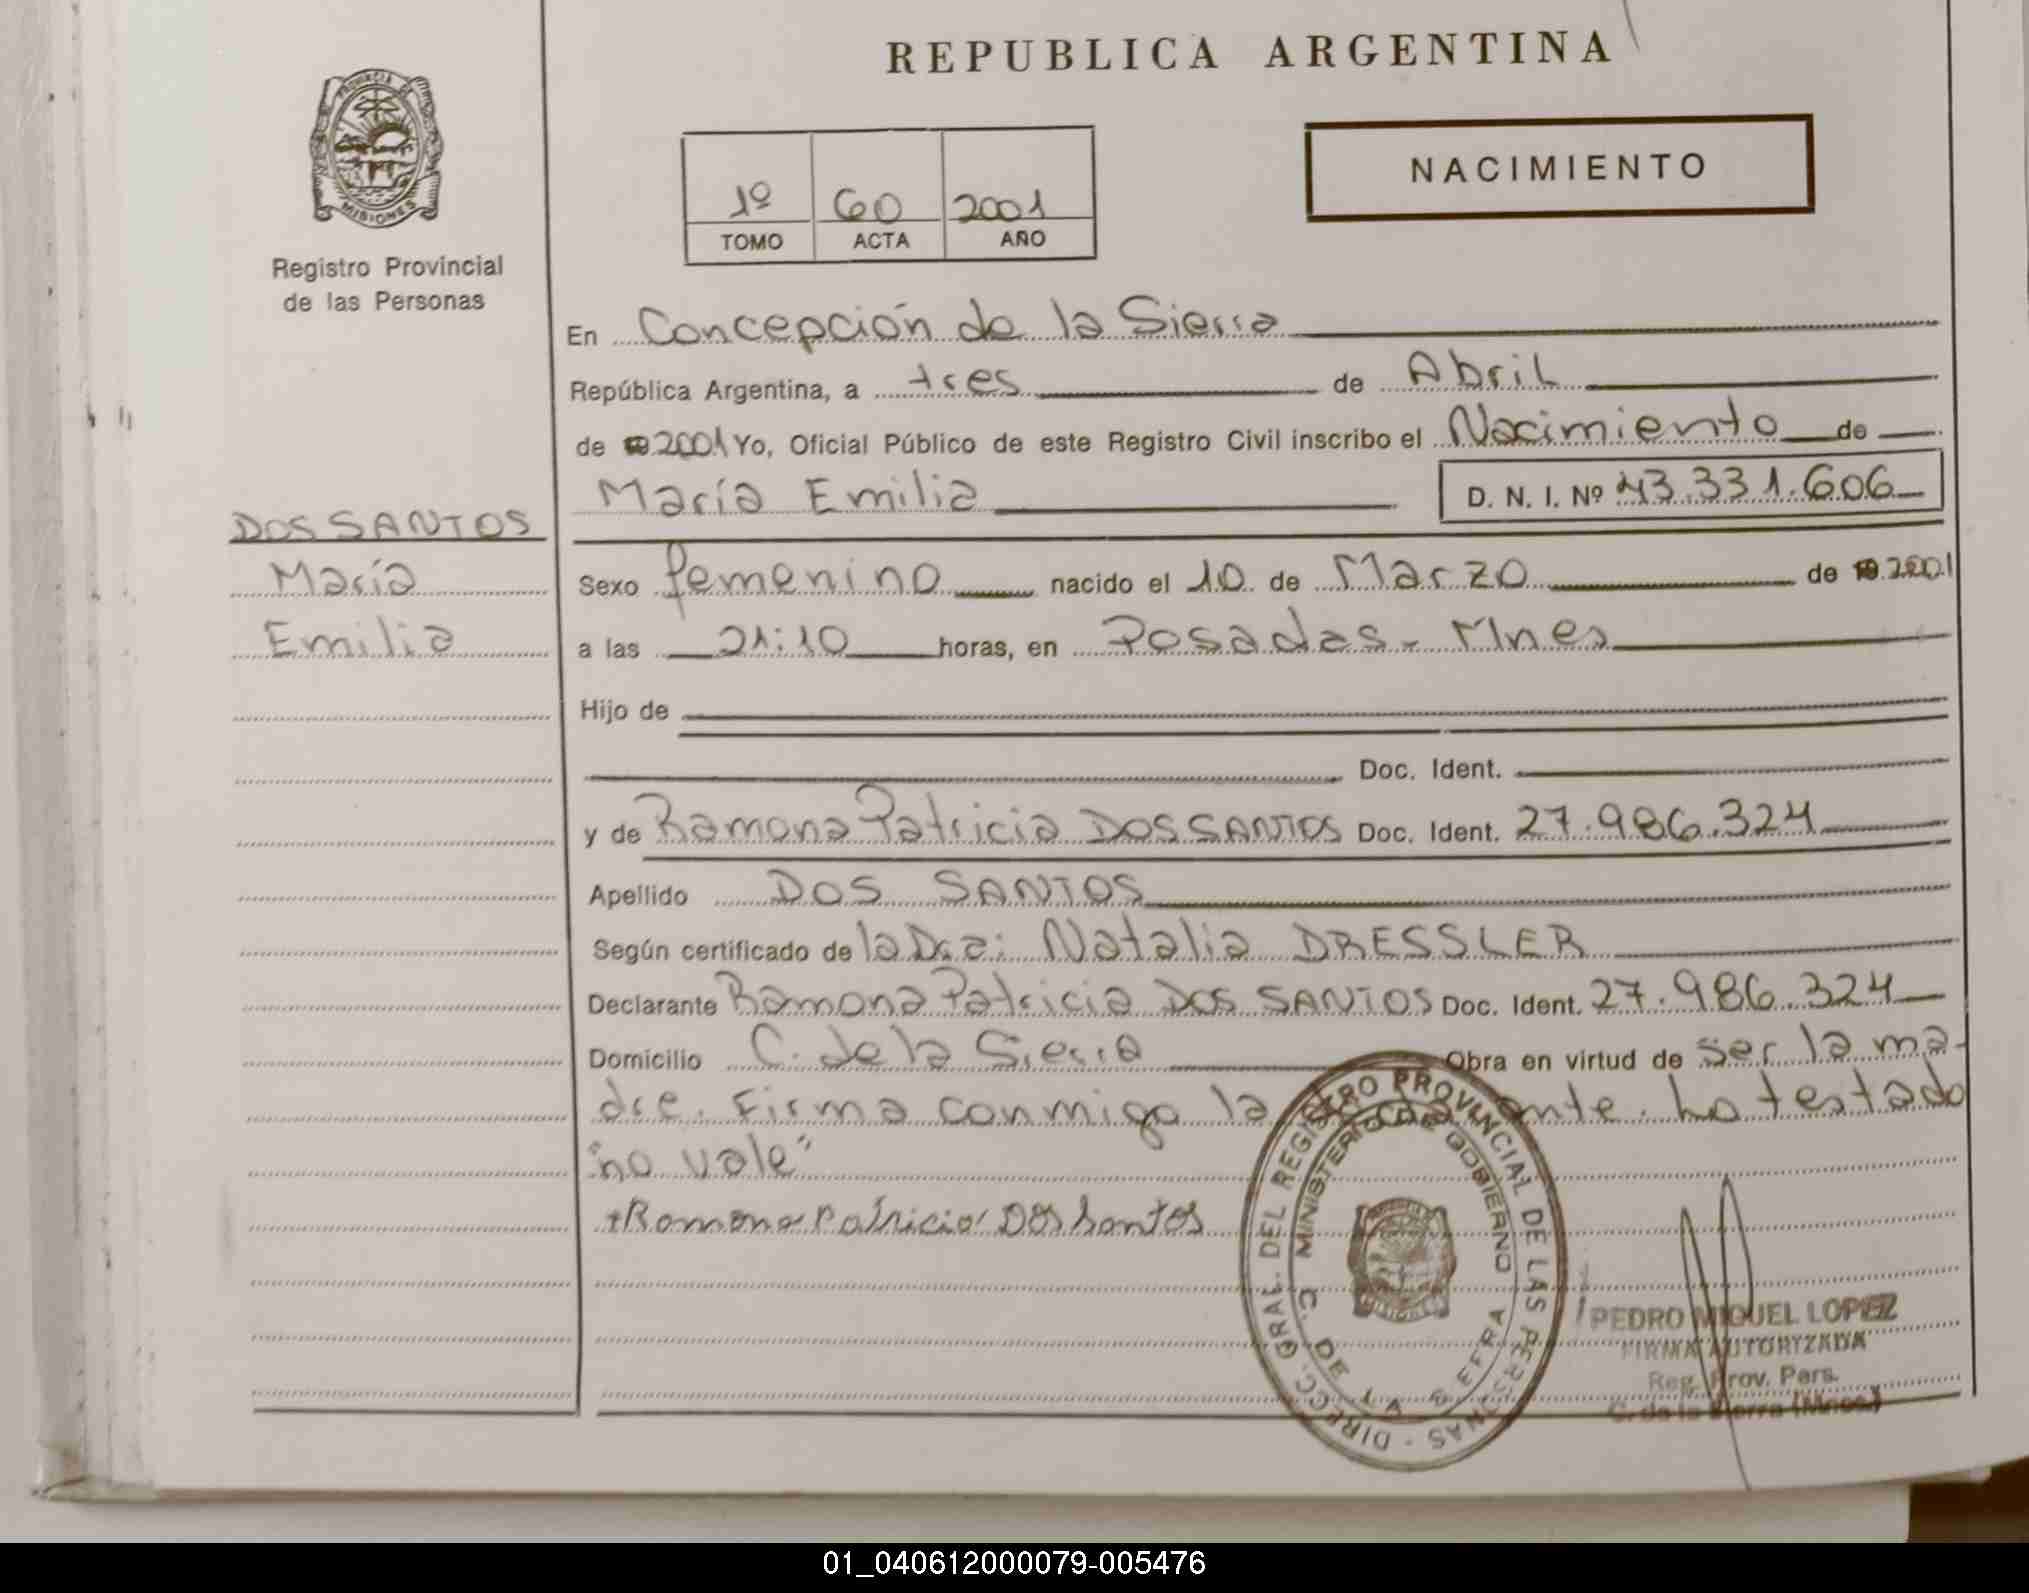 REPUBLICA ARGENTINA
PROVINCIA DE
MISIONES
Registro Provincial
de las Personas
1º 60 2001
TOMO ACTA AÑO
NACIMIENTO
En Concepción de la Sierra
República Argentina, a tres de Abril
de 2001 Yo, Oficial Público de este Registro Civil inscribo el Nacimiento de
María Emilia D. N. I. Nº 43.331.606
DOS SANTOS
María
Emilia
Sexo femenino nacido el 10 de Marzo de 2001
a las 21:10 horas, en Posadas - Mnes
Hijo de
Doc. Ident.
y de Ramona Patricia DOS SANTOS Doc. Ident. 27.986.324
Apellido DOS SANTOS
Según certificado de la Dra: Natalia DRESSLER
Declarante Ramona Patricia DOS SANTOS Doc. Ident. 27.986.324
Domicilio C. de la Sierra Obra en virtud de ser la ma-
dre. Firma conmigo la declarante. Lo testado
"no vale"
Ramona Patricia Dos Santos
DIRECC. GRAL. DEL REGISTRO PROVINCIAL DE LAS PERSONAS
MINISTERIO DE GOBIERNO
C. DE LA SIERRA
PEDRO MIGUEL LOPEZ
FIRMA AUTORIZADA
Reg. Prov. Pers.
C. de la Sierra (Mnes.)
01_040612000079-005476